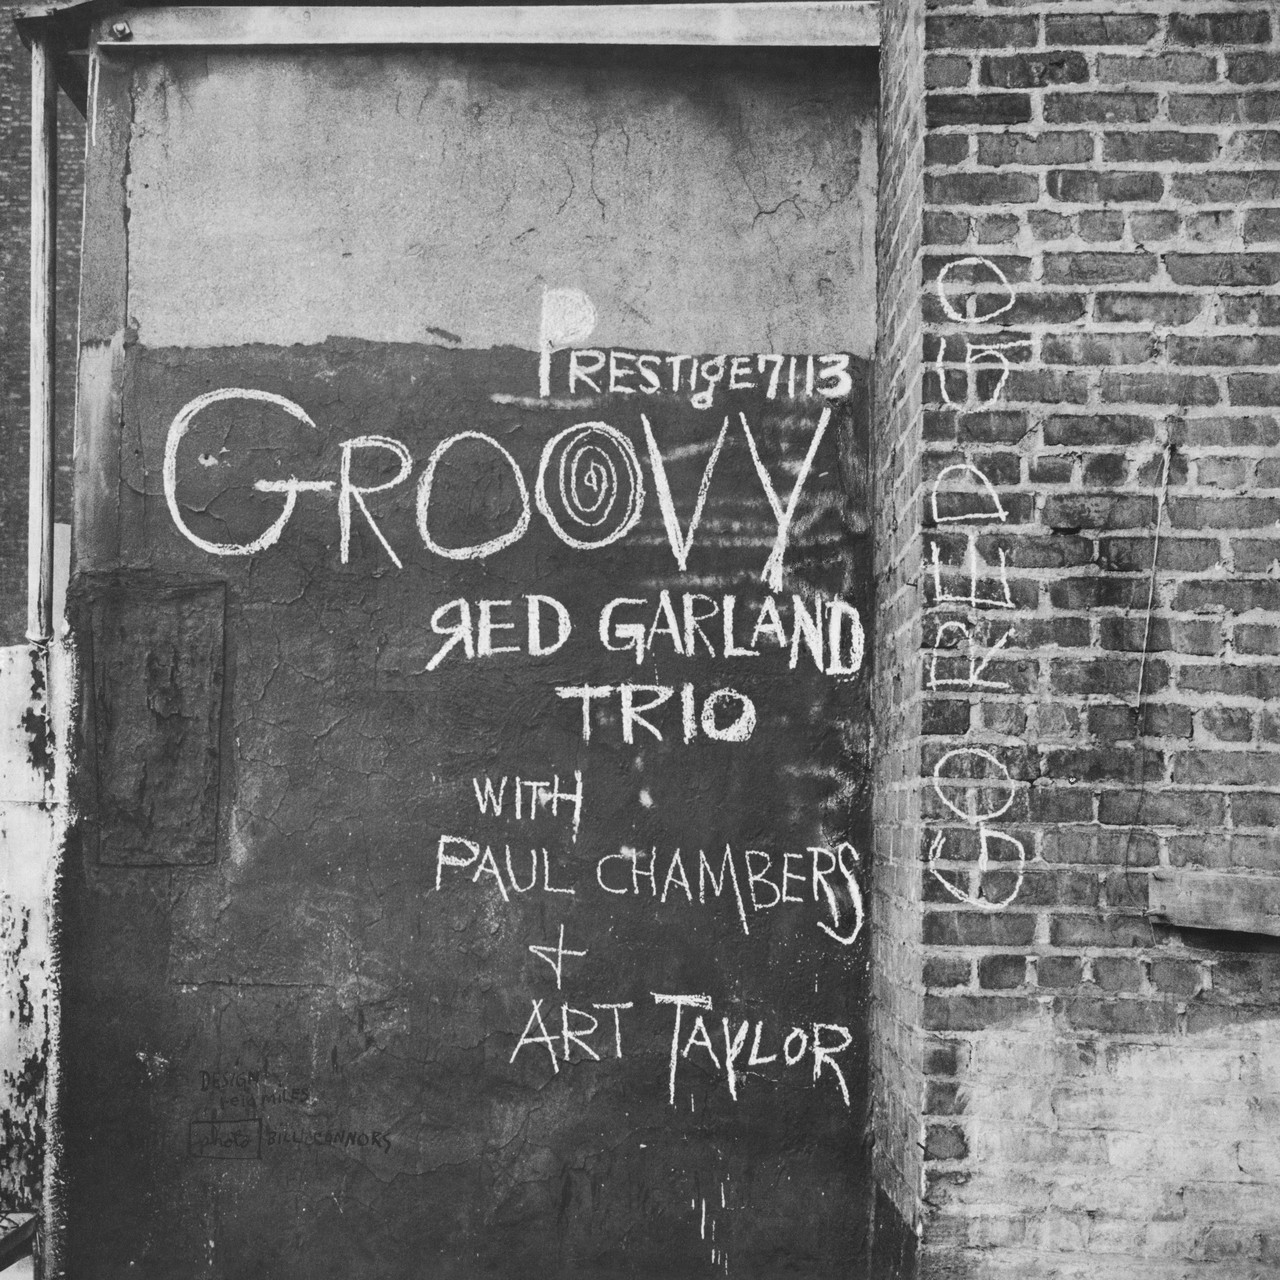 PRESTIgE7113
GROOVY
RED GARLAND
TRIO
WITH
PAUL CHAMBERS
+
ART TAYLOR
DESIGN
reid MILES
photo BILL CONNORS
GO RED GO